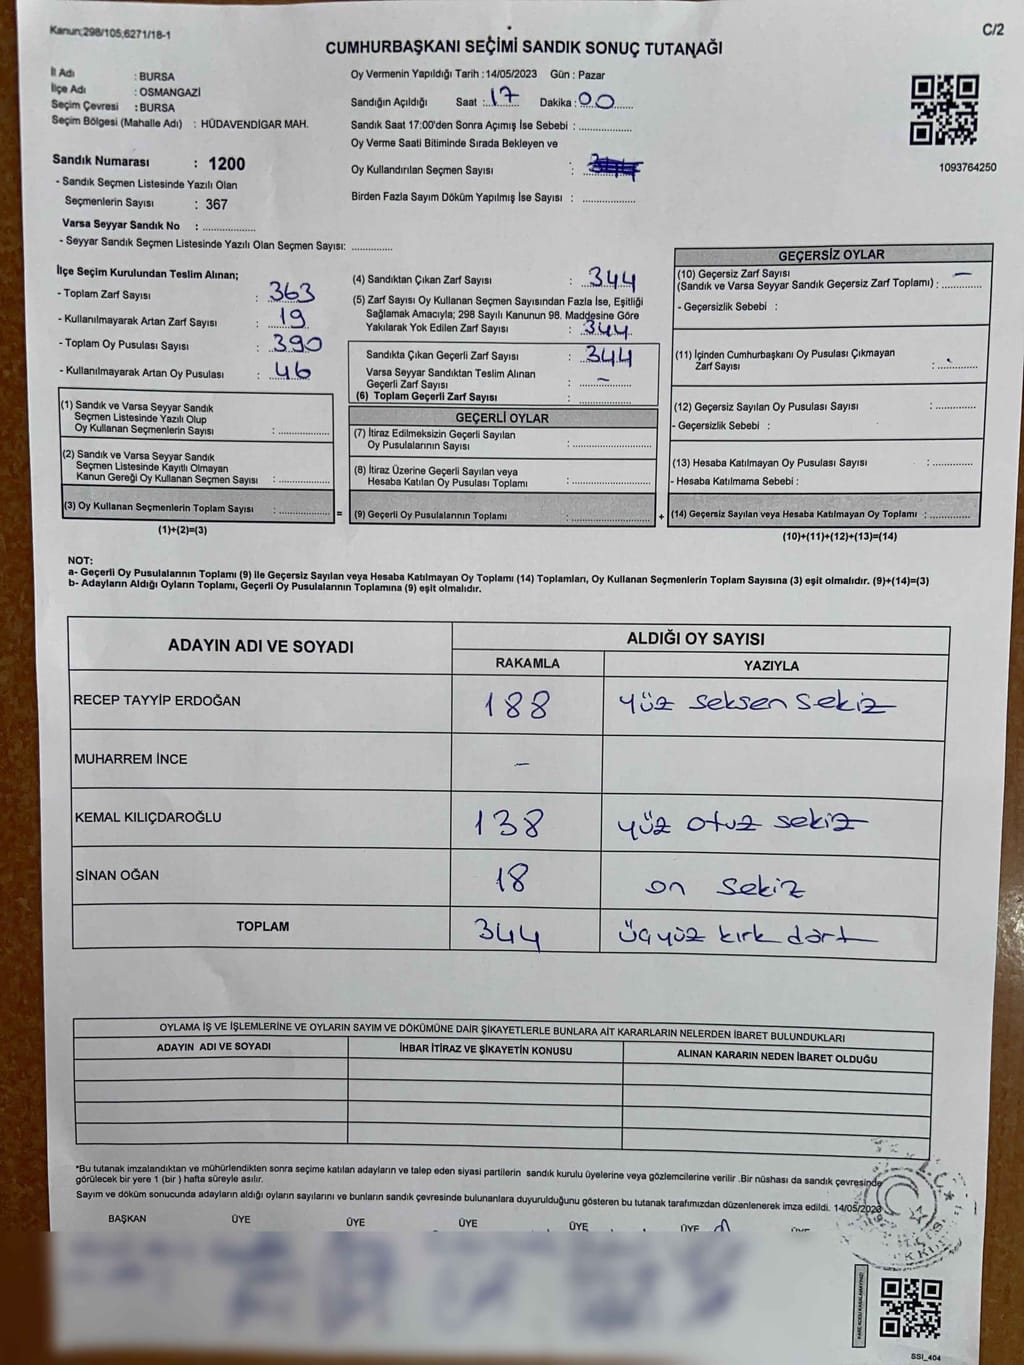 Kanun;298/105;6271/18-1
C/2
CUMHURBAŞKANI SEÇİMİ SANDIK SONUÇ TUTANAĞI
İl Adı : BURSA
İlçe Adı : OSMANGAZİ
Seçim Çevresi : BURSA
Seçim Bölgesi (Mahalle Adı) : HÜDAVENDİGAR MAH.
Sandık Numarası : 1200
- Sandık Seçmen Listesinde Yazılı Olan
Seçmenlerin Sayısı : 367
Varsa Seyyar Sandık No : ..............
- Seyyar Sandık Seçmen Listesinde Yazılı Olan Seçmen Sayısı: ............
Oy Vermenin Yapıldığı Tarih : 14/05/2023 Gün : Pazar
Sandığın Açıldığı Saat : 17 Dakika : 00
Sandık Saat 17:00'den Sonra Açımış İse Sebebi : ................
Oy Verme Saati Bitiminde Sırada Bekleyen ve
Oy Kullandırılan Seçmen Sayısı :
Birden Fazla Sayım Döküm Yapılmış İse Sayısı : ................
1093764250
İlçe Seçim Kurulundan Teslim Alınan;
- Toplam Zarf Sayısı : 363
- Kullanılmayarak Artan Zarf Sayısı : 19
- Toplam Oy Pusulası Sayısı : 390
- Kullanılmayarak Artan Oy Pusulası : 46
(1) Sandık ve Varsa Seyyar Sandık
Seçmen Listesinde Yazılı Olup
Oy Kullanan Seçmenlerin Sayısı : ..............
(2) Sandık ve Varsa Seyyar Sandık
Seçmen Listesinde Kayıtlı Olmayan
Kanun Gereği Oy Kullanan Seçmen Sayısı : ..............
(3) Oy Kullanan Seçmenlerin Toplam Sayısı : .............. =
(1)+(2)=(3)
(4) Sandıktan Çıkan Zarf Sayısı : 344
(5) Zarf Sayısı Oy Kullanan Seçmen Sayısından Fazla İse, Eşitliği
Sağlamak Amacıyla; 298 Sayılı Kanunun 98. Maddesine Göre
Yakılarak Yok Edilen Zarf Sayısı : 344
Sandıkta Çıkan Geçerli Zarf Sayısı : 344
Varsa Seyyar Sandıktan Teslim Alınan
Geçerli Zarf Sayısı : –
(6) Toplam Geçerli Zarf Sayısı : ..............
GEÇERLİ OYLAR
(7) İtiraz Edilmeksizin Geçerli Sayılan
Oy Pusulalarının Sayısı : ..............
(8) İtiraz Üzerine Geçerli Sayılan veya
Hesaba Katılan Oy Pusulası Toplamı : ..............
(9) Geçerli Oy Pusulalarının Toplamı : .............. +
GEÇERSİZ OYLAR
(10) Geçersiz Zarf Sayısı
(Sandık ve Varsa Seyyar Sandık Geçersiz Zarf Toplamı) : –
- Geçersizlik Sebebi :
(11) İçinden Cumhurbaşkanı Oy Pusulası Çıkmayan
Zarf Sayısı : ..............
(12) Geçersiz Sayılan Oy Pusulası Sayısı : ..............
- Geçersizlik Sebebi :
(13) Hesaba Katılmayan Oy Pusulası Sayısı : ..............
- Hesaba Katılmama Sebebi :
(14) Geçersiz Sayılan veya Hesaba Katılmayan Oy Toplamı : ..............
(10)+(11)+(12)+(13)=(14)
NOT:
a- Geçerli Oy Pusulalarının Toplamı (9) ile Geçersiz Sayılan veya Hesaba Katılmayan Oy Toplamı (14) Toplamları, Oy Kullanan Seçmenlerin Toplam Sayısına (3) eşit olmalıdır. (9)+(14)=(3)
b- Adayların Aldığı Oyların Toplamı, Geçerli Oy Pusulalarının Toplamına (9) eşit olmalıdır.
ADAYIN ADI VE SOYADI
ALDIĞI OY SAYISI
RAKAMLA YAZIYLA
RECEP TAYYİP ERDOĞAN 188 yüz seksen sekiz
MUHARREM İNCE –
KEMAL KILIÇDAROĞLU 138 yüz otuz sekiz
SİNAN OĞAN 18 on sekiz
TOPLAM 344 üçyüz kırk dört
OYLAMA İŞ VE İŞLEMLERİNE VE OYLARIN SAYIM VE DÖKÜMÜNE DAİR ŞİKAYETLERLE BUNLARA AİT KARARLARIN NELERDEN İBARET BULUNDUKLARI
ADAYIN ADI VE SOYADI İHBAR İTİRAZ VE ŞİKAYETİN KONUSU ALINAN KARARIN NEDEN İBARET OLDUĞU
*Bu tutanak imzalandıktan ve mühürlendikten sonra seçime katılan adayların ve talep eden siyasi partilerin sandık kurulu üyelerine veya gözlemcilerine verilir .Bir nüshası da sandık çevresinde
görülecek bir yere 1 (bir ) hafta süreyle asılır.
Sayım ve döküm sonucunda adayların aldığı oyların sayılarını ve bunların sandık çevresinde bulunanlara duyurulduğunu gösteren bu tutanak tarafımızdan düzenlenerek imza edildi. 14/05/2023
BAŞKAN ÜYE ÜYE ÜYE ÜYE ÜYE
SSI_404